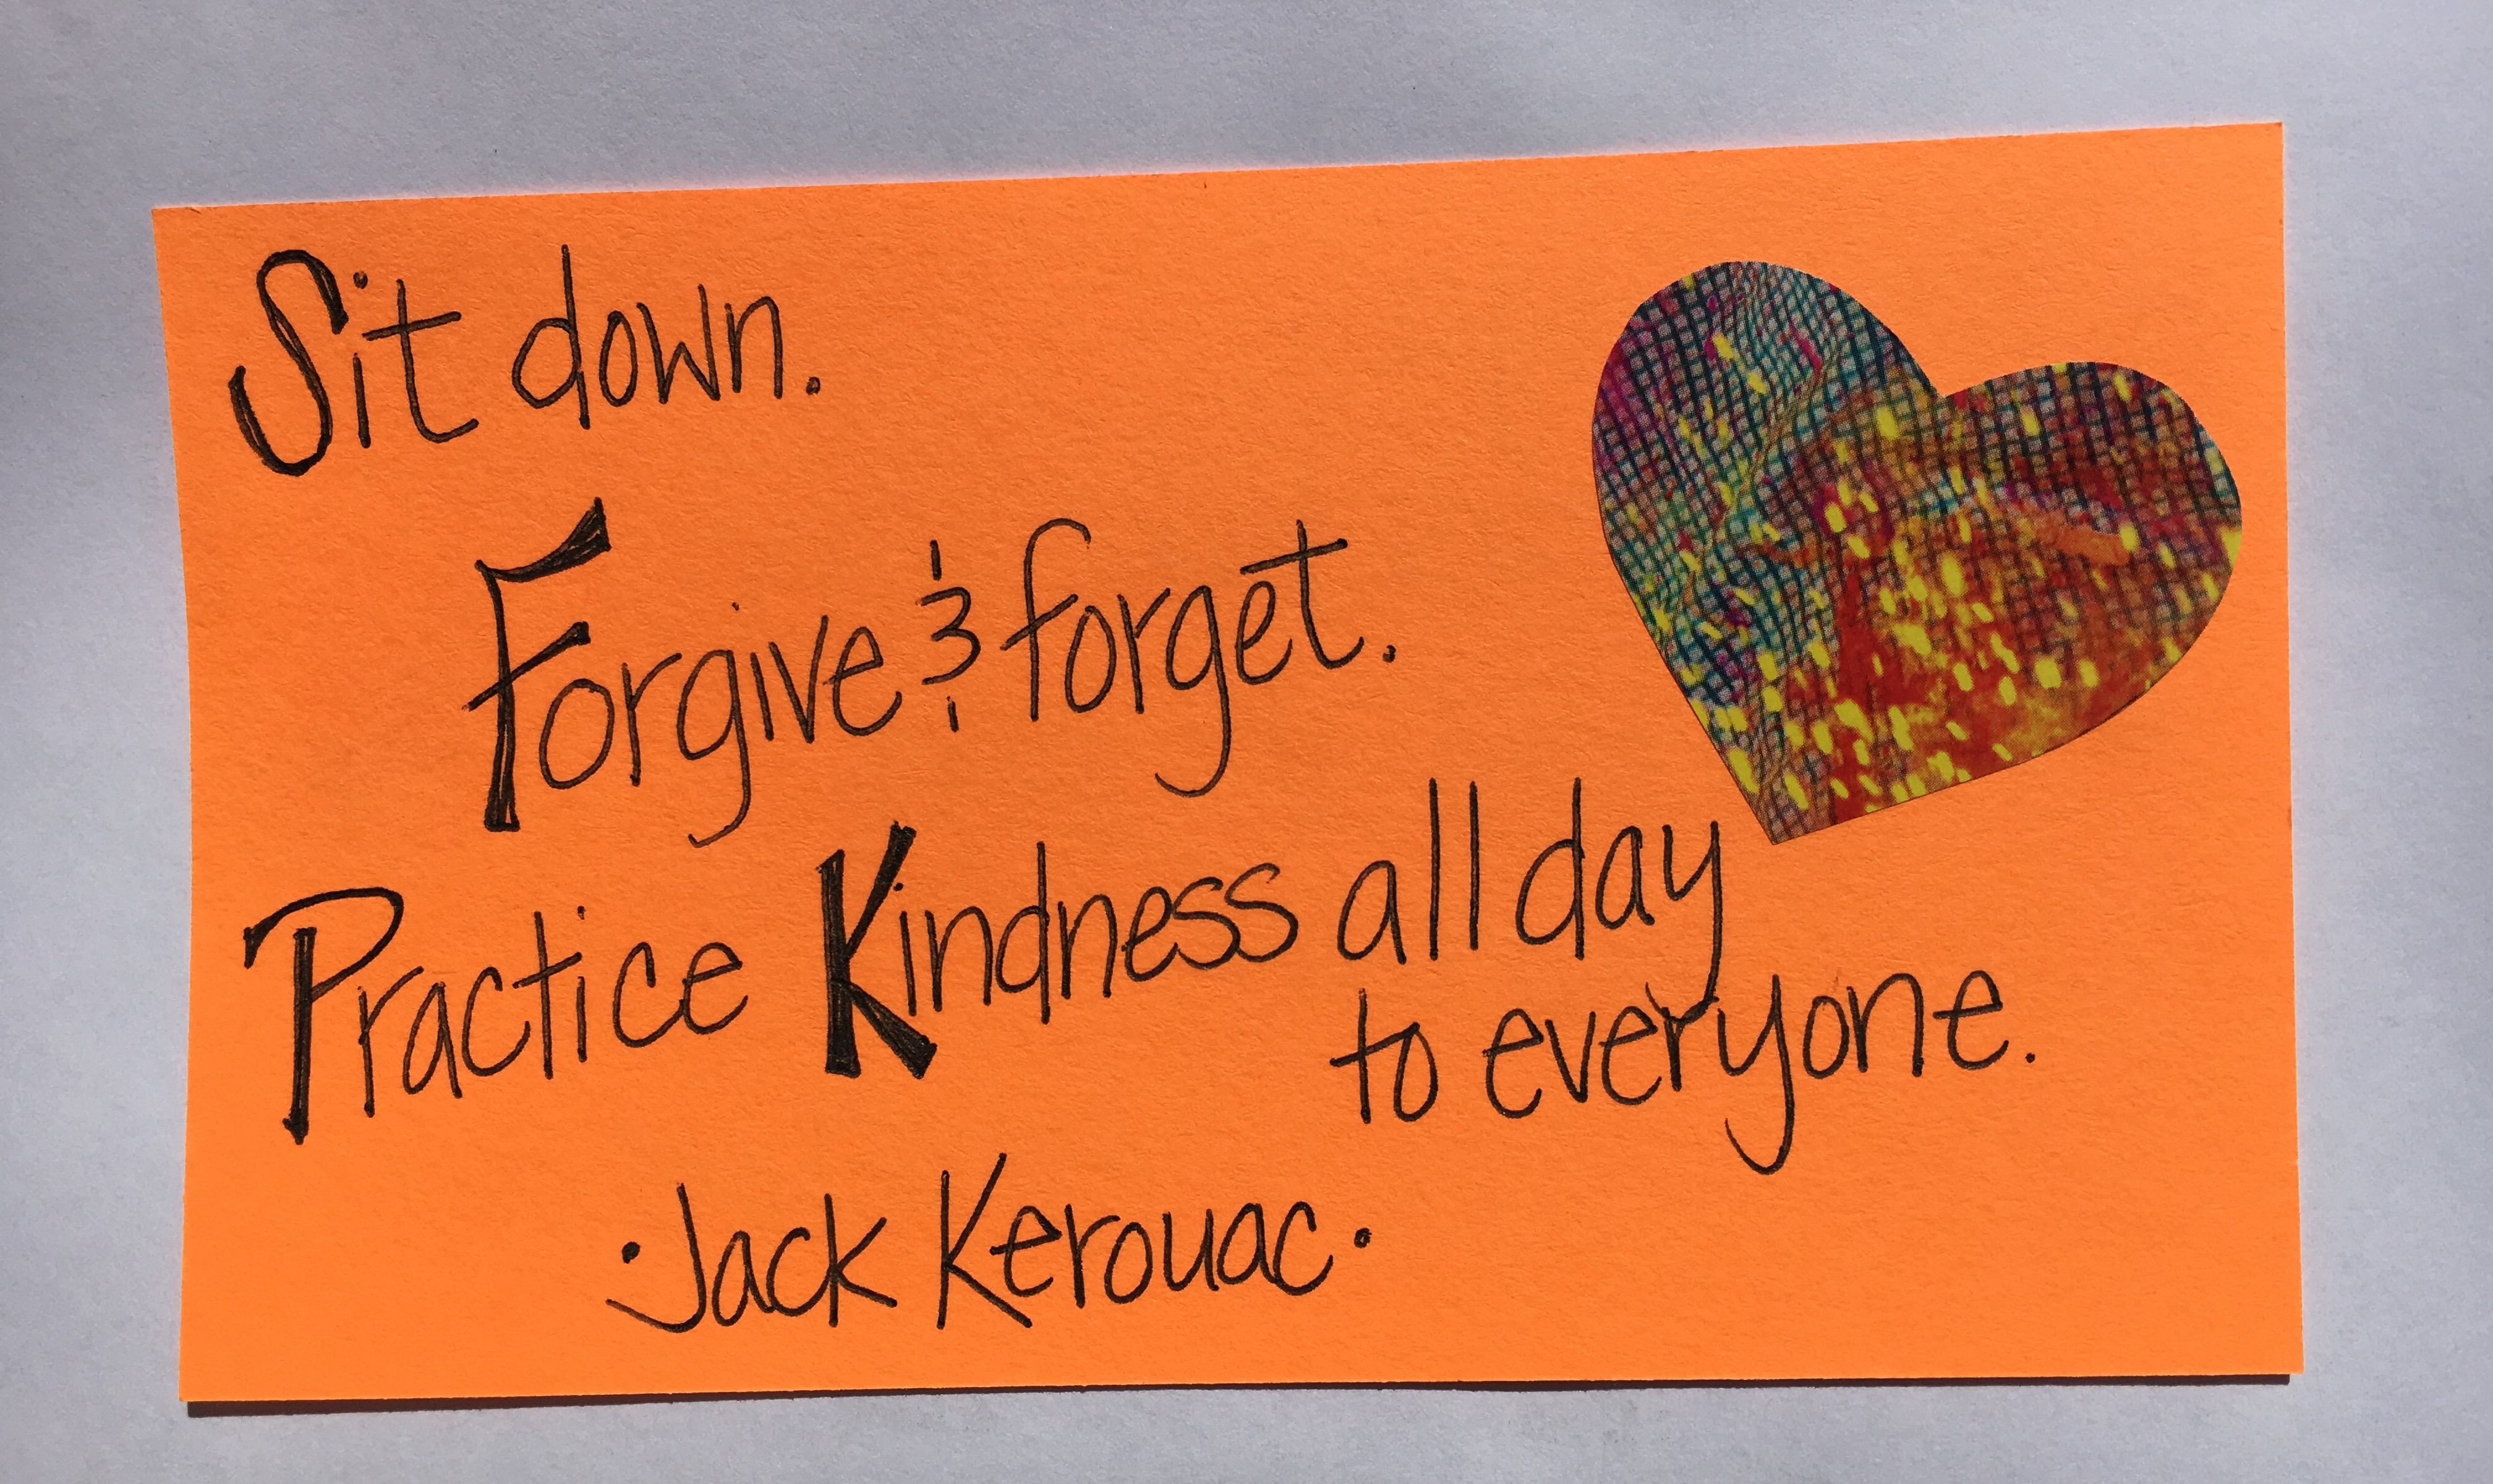 Sit down.
Forgive & forget.
Practice Kindness all day
to everyone.
·Jack Kerouac·